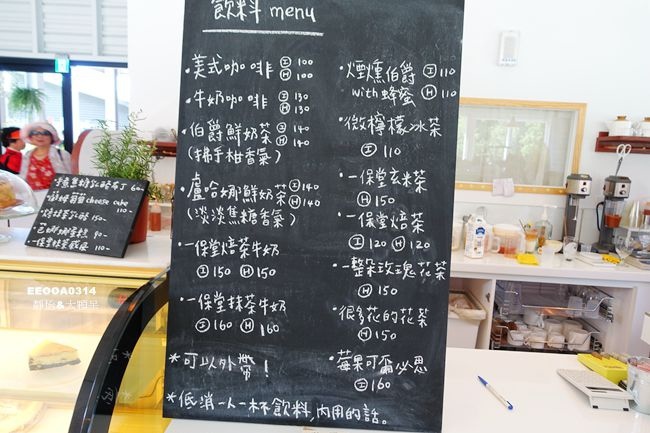 飲料 menu
·美式咖啡 Ⓘ 100
Ⓗ 100
·牛奶咖啡 Ⓘ 130
Ⓗ 130
·伯爵鮮奶茶 Ⓘ 140
Ⓗ 140
(拂手柑香氣)
·盧哈娜鮮奶茶 Ⓘ 140
Ⓗ 140
(淡淡焦糖香氣)
·一保堂焙茶牛奶
Ⓘ 150 Ⓗ 150
·一保堂抹茶牛奶
Ⓘ 160 Ⓗ 160
*可以外帶!
*低消一人一杯飲料,內用的話。
·煙燻伯爵 Ⓘ 110
with蜂蜜 Ⓗ 110
·微檸檬冰茶
Ⓘ 110
·一保堂玄米茶
Ⓗ 150
·一保堂焙茶
Ⓘ 120 Ⓗ 120
·一整朵玫瑰花茶
Ⓗ 150
·很多花的花茶
Ⓗ 150
·莓果可爾必思
Ⓘ 160
60
cheese cake
110
150
90
110
EEOOA0314